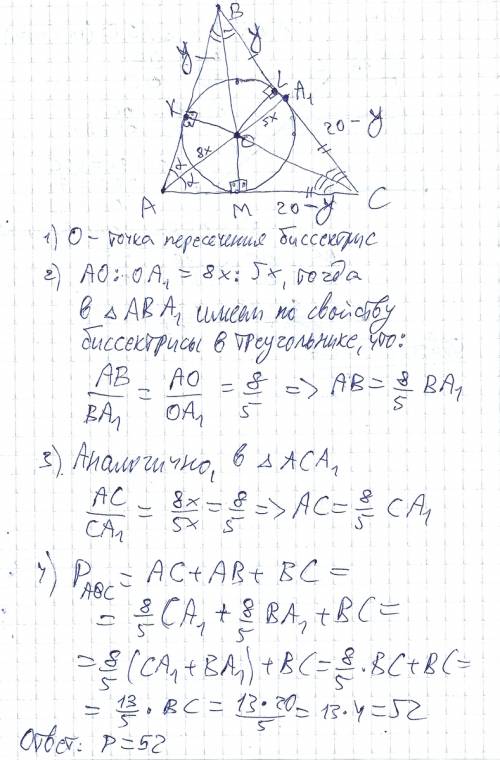 B
y
y
L
A₁
K
5x
20-y
O
8x
α
α
A
M
20-y
C
1) O - точка пересечения биссектрис
2) AO : OA₁ = 8x : 5x, тогда
в △ ABA₁ имеем по свойству
биссектрисы в треугольнике, что:
AB/BA₁ = AO/OA₁ = 8/5 => AB = 8/5 BA₁
3). Аналогично, в △ ACA₁
AC/CA₁ = 8x/5x = 8/5 => AC = 8/5 CA₁
4) P_ABC = AC + AB + BC =
= 8/5 CA₁ + 8/5 BA₁ + BC =
= 8/5 (CA₁ + BA₁) + BC = 8/5 · BC + BC =
= 13/5 · BC = 13·20/5 = 13·4 = 52
Ответ: P = 52